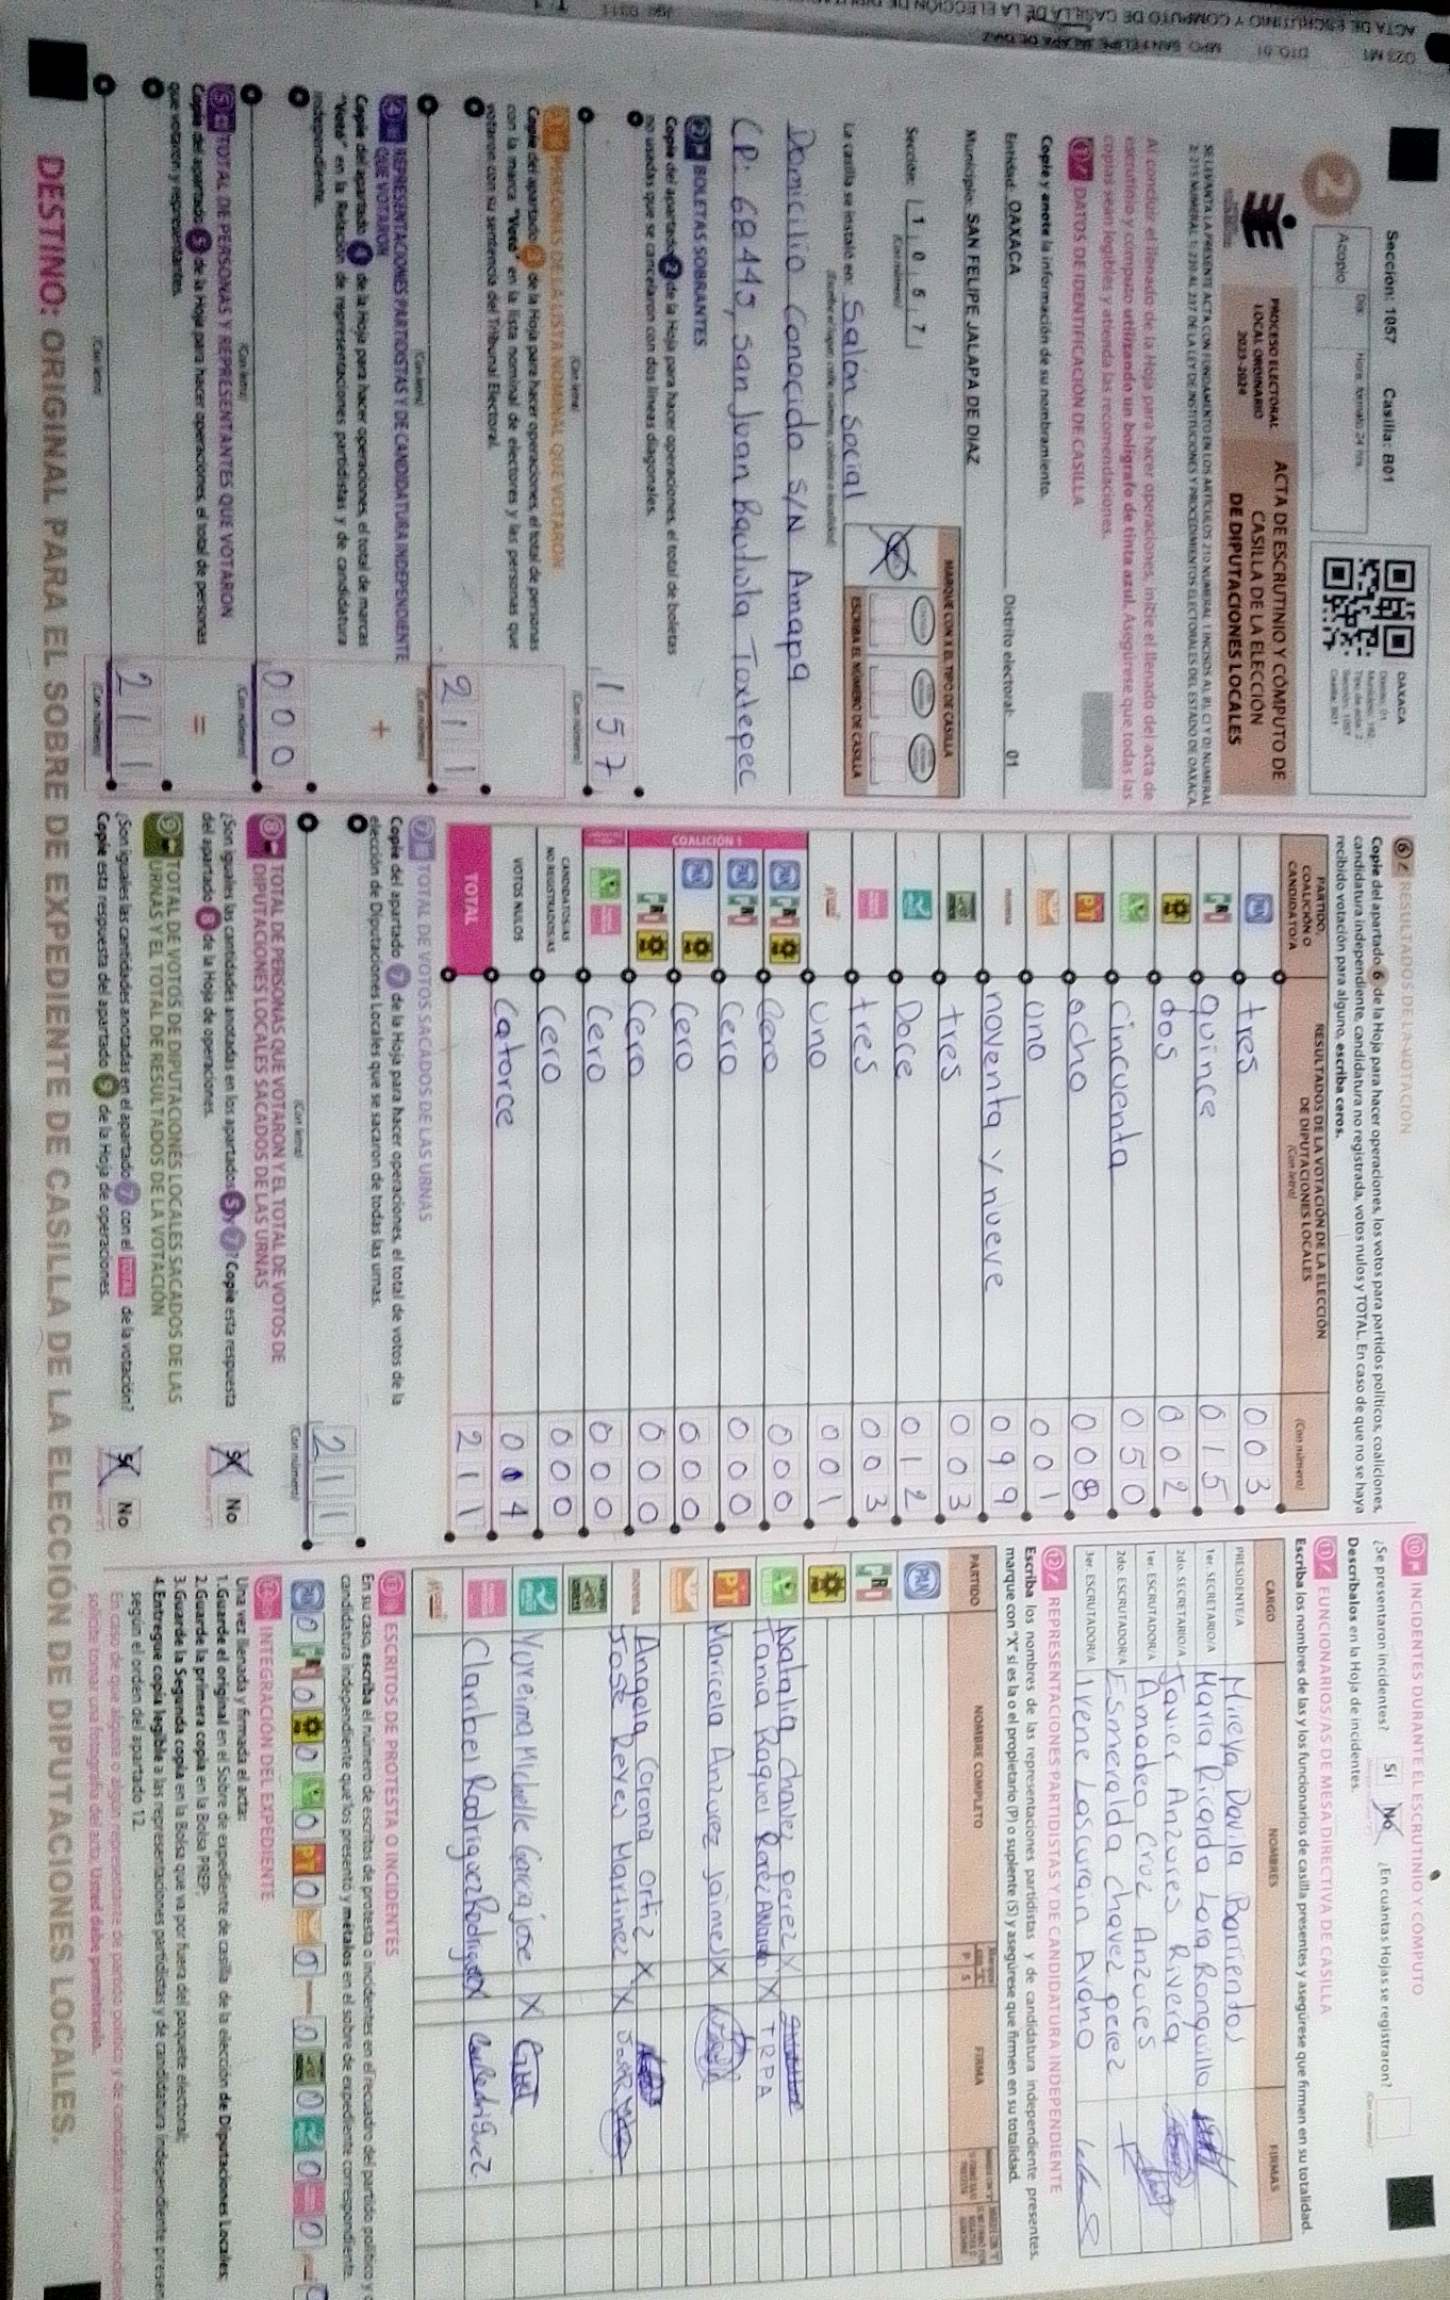 Sección: 1057 Casilla: B01
2
Acopio
Día
Hora: formato 24 hrs.
OAXACA
PROCESO ELECTORAL
LOCAL ORDINARIO
2023-2024
ACTA DE ESCRUTINIO Y CÓMPUTO DE
CASILLA DE LA ELECCIÓN
DE DIPUTACIONES LOCALES
Al concluir el llenado de la Hoja para hacer operaciones, inicie el llenado del acta de
escrutinio y cómputo utilizando un bolígrafo de tinta azul. Asegúrese que todas las
copias sean legibles y atienda las recomendaciones.
1 DATOS DE IDENTIFICACIÓN DE CASILLA
Copie y anote la información de su nombramiento.
Entidad: OAXACA Distrito electoral: 01
Municipio: SAN FELIPE JALAPA DE DIAZ
Sección: 1 0 5 7
(Con número)
MARQUE CON X EL TIPO DE CASILLA
ESCRIBA EL NÚMERO DE CASILLA
La casilla se instaló en: Salón Social
Domicilio Conocido S/N Amapa
C.P: 68445, San Juan Bautista Tuxtepec
2 BOLETAS SOBRANTES
Copie del apartado 2 de la Hoja para hacer operaciones, el total de boletas
no usadas que se cancelaron con dos líneas diagonales.
157
(Con letra) (Con número)
3 PERSONAS DE LA LISTA NOMINAL QUE VOTARON
Copie del apartado 3 de la Hoja para hacer operaciones, el total de personas
con la marca "Votó" en la lista nominal de electores y las personas que
votaron con su sentencia del Tribunal Electoral.
211
(Con letra) (Con número)
4 REPRESENTACIONES PARTIDISTAS Y DE CANDIDATURA INDEPENDIENTE
QUE VOTARON
+
Copie del apartado 4 de la Hoja para hacer operaciones, el total de marcas
"Votó" en la Relación de representaciones partidistas y de candidatura
independiente.
000
(Con letra) (Con número)
5 TOTAL DE PERSONAS Y REPRESENTANTES QUE VOTARON
=
Copie del apartado 5 de la Hoja para hacer operaciones, el total de personas
que votaron y representantes.
211
(Con letra) (Con número)
6 RESULTADOS DE LA VOTACIÓN
Copie del apartado 6 de la Hoja para hacer operaciones, los votos para partidos políticos, coaliciones,
candidatura independiente, candidatura no registrada, votos nulos y TOTAL. En caso de que no se haya
recibido votación para alguno, escriba ceros.
PARTIDO,
COALICIÓN O
CANDIDATO/A
RESULTADOS DE LA VOTACIÓN DE LA ELECCIÓN
DE DIPUTACIONES LOCALES
(Con letra)
(Con número)
PAN tres 003
PRI quince 015
PRD dos 002
cincuenta 050
PT ocho 008
uno 001
morena noventa y nueve 099
tres 003
Doce 012
tres 003
uno 001
COALICIÓN 1
PAN PRI PRD Cero 000
PAN PRI Cero 000
PAN PRD Cero 000
PRI PRD Cero 000
Cero 000
CANDIDATOS/AS
NO REGISTRADOS/AS Cero 000
VOTOS NULOS Catorce 014
TOTAL 211
7 TOTAL DE VOTOS SACADOS DE LAS URNAS
Copie del apartado 7 de la Hoja para hacer operaciones, el total de votos de la
elección de Diputaciones Locales que se sacaron de todas las urnas.
211
(Con letra) (Con número)
8 TOTAL DE PERSONAS QUE VOTARON Y EL TOTAL DE VOTOS DE
DIPUTACIONES LOCALES SACADOS DE LAS URNAS
¿Son iguales las cantidades anotadas en los apartados 5 y 7? Copie esta respuesta
del apartado 8 de la Hoja de operaciones.
Sí No
9 TOTAL DE VOTOS DE DIPUTACIONES LOCALES SACADOS DE LAS
URNAS Y EL TOTAL DE RESULTADOS DE LA VOTACIÓN
¿Son iguales las cantidades anotadas en el apartado 7 con el TOTAL de la votación?
Copie esta respuesta del apartado 9 de la Hoja de operaciones.
Sí No
10 INCIDENTES DURANTE EL ESCRUTINIO Y CÓMPUTO
¿Se presentaron incidentes? Sí No ¿En cuántas Hojas se registraron?
Descríbalos en la Hoja de incidentes.
11 FUNCIONARIOS/AS DE MESA DIRECTIVA DE CASILLA
Escriba los nombres de las y los funcionarios de casilla presentes y asegúrese que firmen en su totalidad.
CARGO NOMBRES FIRMAS
PRESIDENTE/A Mireya Davila Barrientos
1er. SECRETARIO/A Maria Ricarda Lara Ronquillo
2do. SECRETARIO/A Javier Anzures Rivera
1er. ESCRUTADOR/A Amadeo Cruz Anzures
2do. ESCRUTADOR/A Esmeralda Chavez perez
3er. ESCRUTADOR/A Irene Lascurain
12 REPRESENTACIONES PARTIDISTAS Y DE CANDIDATURA INDEPENDIENTE
Escriba los nombres de las representaciones partidistas y de candidatura independiente presentes,
marque con "X" si es la o el propietario (P) o suplente (S) y asegúrese que firmen en su totalidad.
PARTIDO NOMBRE COMPLETO P S FIRMA
PAN
PRI
PRD
Natalia Chavez perez X
Tania Raquel X TRPA
PT Maricela Anzurez Jaimes X
morena Angela Corona Ortiz X
Jose Reyes Martinez X
Yureima Michelle Garcia Jose X
Claribel Rodriguez Rodriguez X
13 ESCRITOS DE PROTESTA O INCIDENTES
En su caso, escriba el número de escritos de protesta o incidentes en el recuadro del partido político y
candidatura independiente que los presentó y métalos en el sobre de expediente correspondiente.
PAN 0 PRI 0 PRD 0 0 PT 0 0 0 0 0 0
14 INTEGRACIÓN DEL EXPEDIENTE
Una vez llenada y firmada el acta:
1. Guarde el original en el Sobre de expediente de casilla de la elección de Diputaciones Locales;
2. Guarde la primera copia en la Bolsa PREP;
3. Guarde la Segunda copia en la Bolsa que va por fuera del paquete electoral;
4. Entregue copia legible a las representaciones partidistas y de candidatura independiente
según el orden del apartado 12.
En caso de que alguna o algún representante de partido político y de candidatura
solicite tomar una fotografía del acta, Usted debe permitírselo.
DESTINO: ORIGINAL PARA EL SOBRE DE EXPEDIENTE DE CASILLA DE LA ELECCIÓN DE DIPUTACIONES LOCALES.